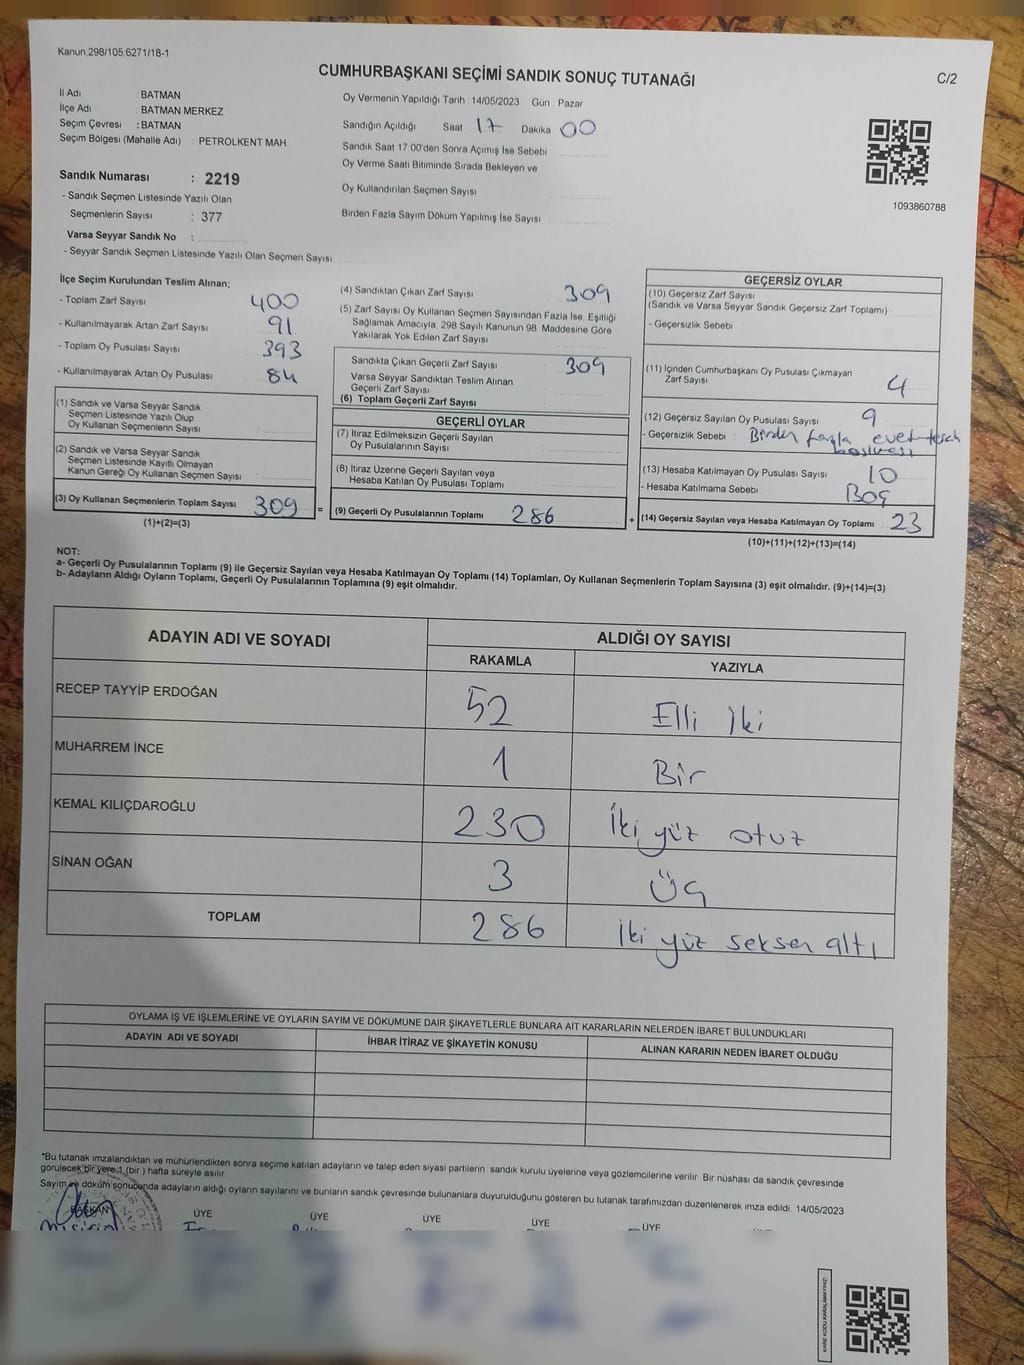 Kanun,298/105,6271/18-1
CUMHURBAŞKANI SEÇİMİ SANDIK SONUÇ TUTANAĞI
C/2
İl Adı BATMAN
İlçe Adı BATMAN MERKEZ
Seçim Çevresi : BATMAN
Seçim Bölgesi (Mahalle Adı) : PETROLKENT MAH
Oy Vermenin Yapıldığı Tarih 14/05/2023 Gün : Pazar
Sandığın Açıldığı Saat 17 Dakika 00
Sandık Saat 17:00'den Sonra Açımış İse Sebebi
Oy Verme Saati Bitiminde Sırada Bekleyen ve
Oy Kullandırılan Seçmen Sayısı
Birden Fazla Sayım Döküm Yapılmış İse Sayısı
1093860788
Sandık Numarası : 2219
- Sandık Seçmen Listesinde Yazılı Olan
Seçmenlerin Sayısı : 377
Varsa Seyyar Sandık No :
- Seyyar Sandık Seçmen Listesinde Yazılı Olan Seçmen Sayısı
İlçe Seçim Kurulundan Teslim Alınan;
- Toplam Zarf Sayısı 400
- Kullanılmayarak Artan Zarf Sayısı 91
- Toplam Oy Pusulası Sayısı 393
- Kullanılmayarak Artan Oy Pusulası 84
(1) Sandık ve Varsa Seyyar Sandık
Seçmen Listesinde Yazılı Olup
Oy Kullanan Seçmenlerin Sayısı
(2) Sandık ve Varsa Seyyar Sandık
Seçmen Listesinde Kayıtlı Olmayan
Kanun Gereği Oy Kullanan Seçmen Sayısı
(3) Oy Kullanan Seçmenlerin Toplam Sayısı 309 =
(1)+(2)=(3)
(4) Sandıktan Çıkan Zarf Sayısı 309
(5) Zarf Sayısı Oy Kullanan Seçmen Sayısından Fazla İse, Eşitliği
Sağlamak Amacıyla, 298 Sayılı Kanunun 98. Maddesine Göre
Yakılarak Yok Edilen Zarf Sayısı
Sandıkta Çıkan Geçerli Zarf Sayısı 309
Varsa Seyyar Sandıktan Teslim Alınan
Geçerli Zarf Sayısı
(6) Toplam Geçerli Zarf Sayısı
GEÇERLİ OYLAR
(7) İtiraz Edilmeksizin Geçerli Sayılan
Oy Pusulalarının Sayısı
(8) İtiraz Üzerine Geçerli Sayılan veya
Hesaba Katılan Oy Pusulası Toplamı
(9) Geçerli Oy Pusulalarının Toplamı 286 +
GEÇERSİZ OYLAR
(10) Geçersiz Zarf Sayısı
(Sandık ve Varsa Seyyar Sandık Geçersiz Zarf Toplamı)
- Geçersizlik Sebebi
(11) İçinden Cumhurbaşkanı Oy Pusulası Çıkmayan
Zarf Sayısı 4
(12) Geçersiz Sayılan Oy Pusulası Sayısı 9
- Geçersizlik Sebebi : Birden fazla evet-tercih
basılması
(13) Hesaba Katılmayan Oy Pusulası Sayısı 10
- Hesaba Katılmama Sebebi Boş
(14) Geçersiz Sayılan veya Hesaba Katılmayan Oy Toplamı 23
(10)+(11)+(12)+(13)=(14)
NOT:
a- Geçerli Oy Pusulalarının Toplamı (9) ile Geçersiz Sayılan veya Hesaba Katılmayan Oy Toplamı (14) Toplamları, Oy Kullanan Seçmenlerin Toplam Sayısına (3) eşit olmalıdır. (9)+(14)=(3)
b- Adayların Aldığı Oyların Toplamı, Geçerli Oy Pusulalarının Toplamına (9) eşit olmalıdır.
ADAYIN ADI VE SOYADI ALDIĞI OY SAYISI
RAKAMLA YAZIYLA
RECEP TAYYİP ERDOĞAN 52 Elli İki
MUHARREM İNCE 1 Bir
KEMAL KILIÇDAROĞLU 230 İki yüz otuz
SİNAN OĞAN 3 Üç
TOPLAM 286 İki yüz seksen altı
OYLAMA İŞ VE İŞLEMLERİNE VE OYLARIN SAYIM VE DÖKÜMÜNE DAİR ŞİKAYETLERLE BUNLARA AİT KARARLARIN NELERDEN İBARET BULUNDUKLARI
ADAYIN ADI VE SOYADI İHBAR İTİRAZ VE ŞİKAYETİN KONUSU ALINAN KARARIN NEDEN İBARET OLDUĞU
*Bu tutanak imzalandıktan ve mühürlendikten sonra seçime katılan adayların ve talep eden siyasi partilerin sandık kurulu üyelerine veya gözlemcilerine verilir. Bir nüshası da sandık çevresinde
görülecek bir yere 1 (bir ) hafta süreyle asılır.
Sayım ve döküm sonucunda adayların aldığı oyların sayılarını ve bunların sandık çevresinde bulunanlara duyurulduğunu gösteren bu tutanak tarafımızdan düzenlenerek imza edildi. 14/05/2023
BAŞKAN ÜYE ÜYE ÜYE ÜYE ÜYE
KARE KODU KARALAMAYINIZ!